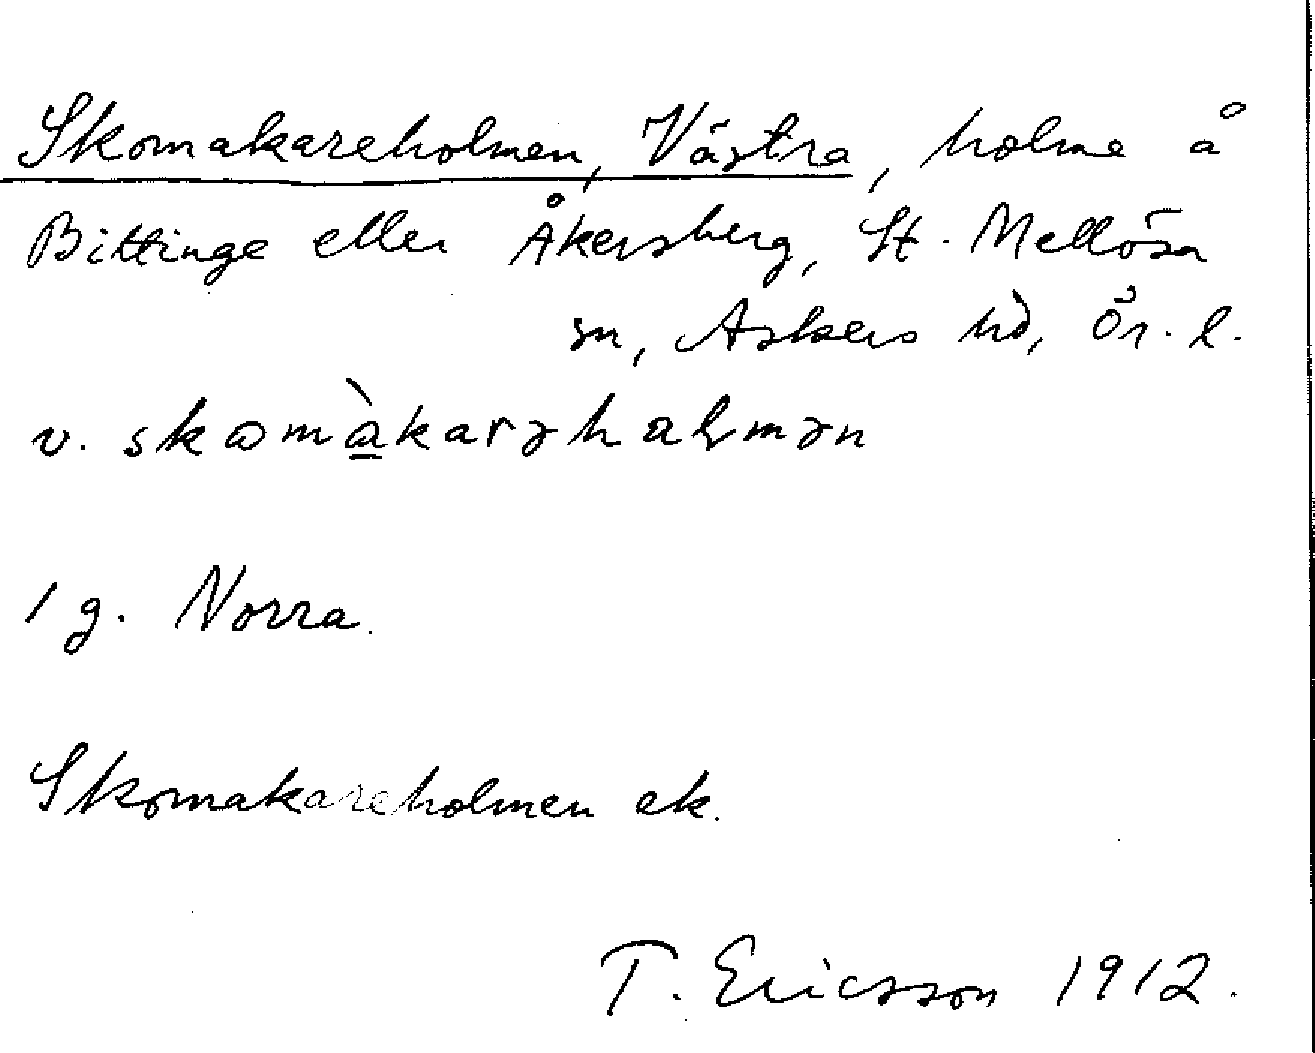 Skomakareholmen, Västra, holme å
Bittinge eller Åkersberg, St. Mellösa
sn, Askers hd, Ör. l.
v. skomàkarəhaɽmən
1 g. Norra.
Skomakareholmen ek.
T. Ericsson 1912.